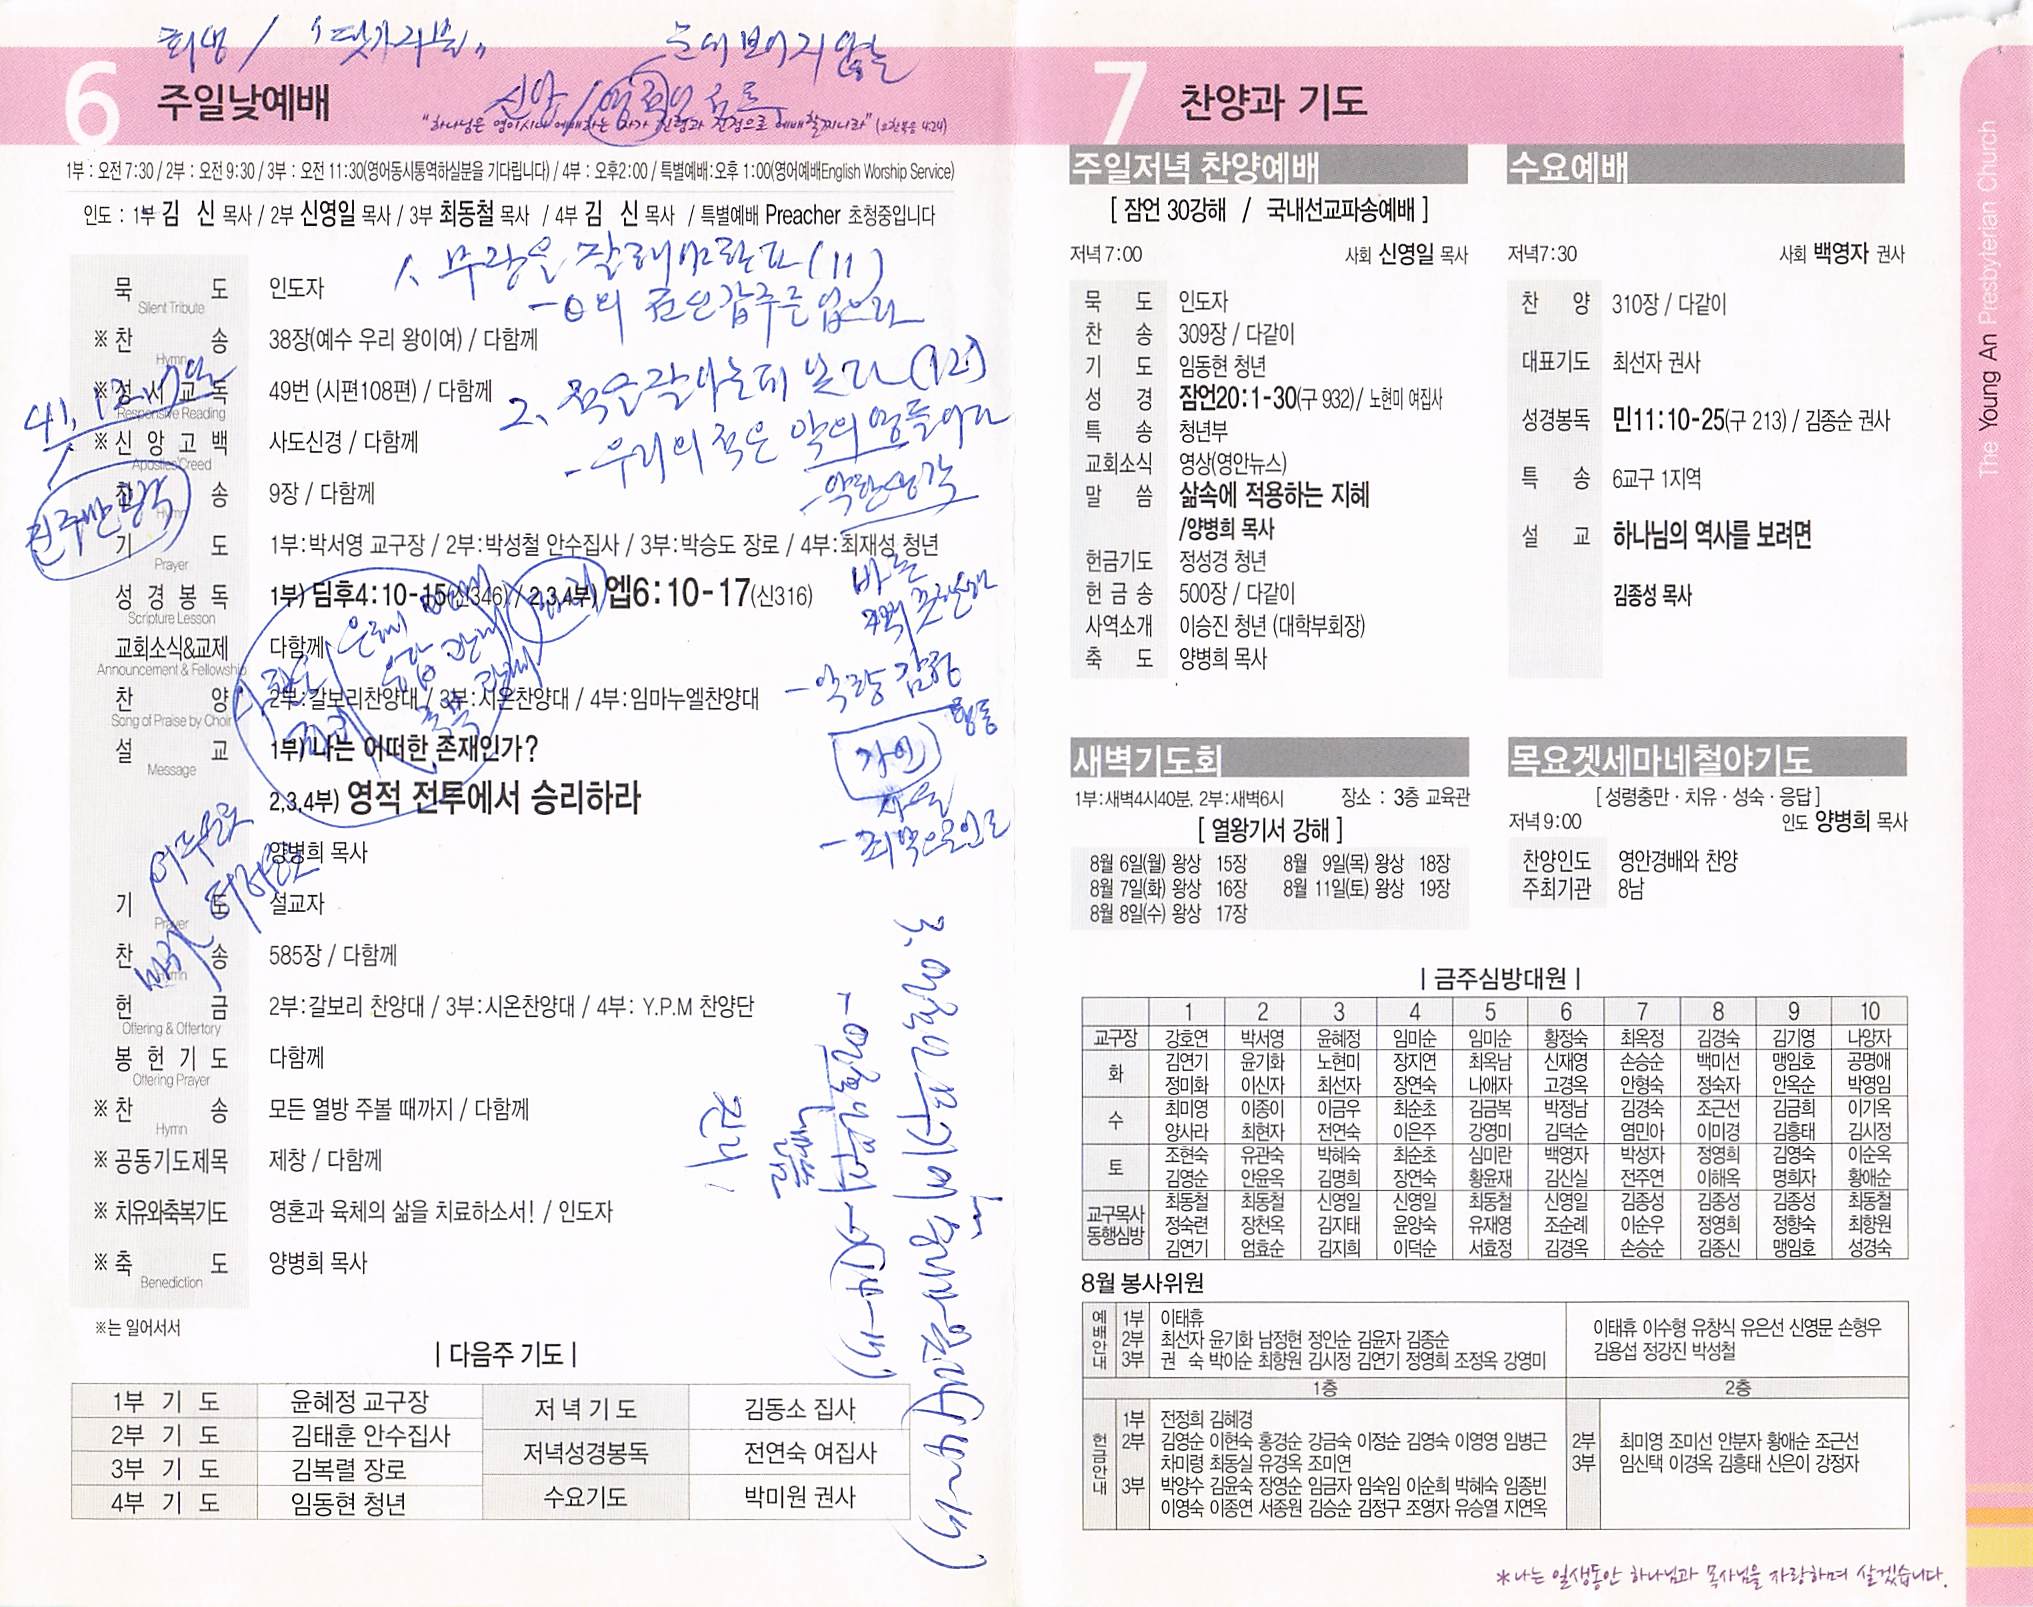 희생 / "뒷가리움"
눈에 보이지 않는
신앙 / 영적인 싸움
6 주일낮예배
"하나님은 영이시니 예배하는 자가 신령과 진정으로 예배할찌니라" (요한복음 4:24)
1부 : 오전 7:30 / 2부 : 오전 9:30 / 3부 : 오전 11:30(영어동시통역하실분을 기다립니다) / 4부 : 오후2:00 / 특별예배:오후 1:00(영어예배English Worship Service)
인도 : 1부 김 신 목사 / 2부 신영일 목사 / 3부 최동철 목사 / 4부 김 신 목사 / 특별예배 Preacher 초청중입니다
1. 무장을 잘해야한다(11)
묵 도 인도자
Silent Tribute
※ 찬 송 38장(예수 우리 왕이여) / 다함께
Hymn
※ 성 서 교 독 49번 (시편108편) / 다함께
Responsive Reading
2. 적을 잘 아는데 있다(12)
※ 신 앙 고 백 사도신경 / 다함께
Apostles'Creed
- 우리의 적은 악의 영들이다
찬 송 9장 / 다함께
Hymn
- 악한 생각
기 도 1부:박서영 교구장 / 2부:박성철 안수집사 / 3부:박승도 장로 / 4부:최재성 청년
Prayer
성 경 봉 독 1부) 딤후4:10-15(신346) / 2,3,4부) 엡6:10-17(신316)
Scripture Lesson
교회소식&교제 다함께
Announcement & Fellowship
찬 양 2부:갈보리찬양대 / 3부:시온찬양대 / 4부:임마누엘찬양대
Song of Praise by Choir
설 교 1부) 나는 어떠한 존재인가?
Message
2,3,4부) 영적 전투에서 승리하라
양병희 목사
기 도 설교자
Prayer
찬 송 585장 / 다함께
Hymn
헌 금 2부:갈보리 찬양대 / 3부:시온찬양대 / 4부: Y.P.M 찬양단
Offering & Offertory
봉 헌 기 도 다함께
Offering Prayer
※ 찬 송 모든 열방 주볼 때까지 / 다함께
Hymn
※ 공동기도제목 제창 / 다함께
※ 치유와축복기도 영혼과 육체의 삶을 치료하소서! / 인도자
※ 축 도 양병희 목사
Benediction
말씀
진리
※는 일어서서
| 다음주 기도 |
1부 기 도 윤혜정 교구장 저 녁 기 도 김동소 집사
2부 기 도 김태훈 안수집사 저녁성경봉독 전연숙 여집사
3부 기 도 김복렬 장로 수요기도 박미원 권사
4부 기 도 임동현 청년
7 찬양과 기도
주일저녁 찬양예배
[ 잠언 30강해 / 국내선교파송예배 ]
저녁 7:00 사회 신영일 목사
묵 도 인도자
찬 송 309장 / 다같이
기 도 임동현 청년
성 경 잠언20:1-30(구 932) / 노현미 여집사
특 송 청년부
교회소식 영상(영안뉴스)
말 씀 삶속에 적용하는 지혜
/양병희 목사
헌금기도 정성경 청년
헌 금 송 500장 / 다같이
사역소개 이승진 청년 (대학부회장)
축 도 양병희 목사
수요예배
저녁7:30 사회 백영자 권사
찬 양 310장 / 다같이
대표기도 최선자 권사
성경봉독 민11:10-25(구 213) / 김종순 권사
특 송 6교구 1지역
설 교 하나님의 역사를 보려면
김종성 목사
새벽기도회
1부:새벽4시40분, 2부:새벽6시 장소 : 3층 교육관
[ 열왕기서 강해 ]
8월 6일(월) 왕상 15장 8월 9일(목) 왕상 18장
8월 7일(화) 왕상 16장 8월 11일(토) 왕상 19장
8월 8일(수) 왕상 17장
목요겟세마네철야기도
[ 성령충만 · 치유 · 성숙 · 응답 ]
저녁 9:00 인도 양병희 목사
찬양인도 영안경배와 찬양
주최기관 8남
| 금주심방대원 |
1 2 3 4 5 6 7 8 9 10
교구장 강호연 박서영 윤혜정 임미순 임미순 황정숙 최옥정 김경숙 김기영 나양자
화 김연기 윤기화 노현미 장지연 최옥남 신재영 손승순 백미선 맹임호 공명애
정미화 이신자 최선자 장연숙 나애자 고경옥 안형숙 정숙자 안옥순 박영임
수 최미영 이종이 이금우 최순초 김금복 박정남 김경숙 조근선 김금희 이기옥
양사라 최현자 전연숙 이은주 강영미 김덕순 염민아 이미경 김흥태 김시정
토 조현숙 유관숙 박혜숙 최순초 심미란 백영자 박성자 정영희 김영숙 이순옥
김영순 안윤옥 김명희 장연숙 황윤재 김신실 전주연 이해옥 명희자 황애순
교구목사 동행심방 최동철 최동철 신영일 신영일 최동철 신영일 김종성 김종성 김종성 최동철
정숙련 장천옥 김지태 윤양숙 유재영 조순례 이순우 정영희 정향숙 최향원
김연기 엄효순 김지희 이덕순 서효정 김경옥 손승순 김종신 맹임호 성경숙
8월 봉사위원
예배안내 1부 이태휴
2부 최선자 윤기화 남정현 정인순 김윤자 김종순
3부 권 숙 박이순 최향원 김시정 김연기 정영희 조정옥 강영미
이태휴 이수형 유창식 유은선 신영문 손형우
김용섭 정강진 박성철
1층 2층
헌금안내 1부 전정희 김혜경
2부 김영순 이현숙 홍경순 강금숙 이정순 김영숙 이영영 임병근
차미령 최동실 유경옥 조미연
3부 박양수 김윤숙 장영순 임금자 임숙임 이순희 박혜숙 임종빈
이영숙 이종연 서종원 김승순 김정구 조영자 유승열 지연옥
2부 최미영 조미선 안분자 황애순 조근선
3부 임신택 이경옥 김흥태 신은이 강정자
*나는 일생동안 하나님과 목사님을 자랑하며 살겠습니다.
The Young An Presbyterian Church